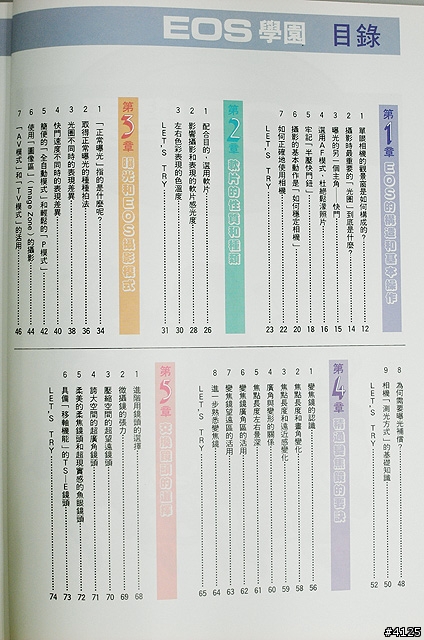 EOS 學園 目錄
第1章 EOS的構造和基本操作
1 單眼相機的觀景窗是如何構成的?……12
2 攝影時最重要的「光圈」到底是什麼?……14
3 曝光的另一個主角,快門……15
4 選用AF模式,杜絕鬆濛照片……16
5 牢記「半壓快門鈕」……18
6 攝影的基本動作是「如何穩定相機」……20
7 如何正確地使用相機……22
LET'S TRY……23
第2章 軟片的性質和種類
1 配合目的,選用軟片……26
2 影響攝影和表現的軟片感光度……28
3 左右色彩表現的色溫度……30
LET'S TRY……31
第3章 曝光和EOS攝影模式
1 「正常曝光」指的是什麼呢?……34
2 取得正常曝光的種種拍法……36
3 光圈不同時的表現差異……38
4 快門速度不同時的表現差異……40
5 簡便的「全自動模式」和輕鬆的「P模式」……42
6 使用「圖像區」(Image Zone)的攝影……44
7 「AV模式」和「TV模式」的活用……46
8 為何需要曝光補償?……48
9 相機「測光方式」的基礎知識……50
LET'S TRY……52
第4章 精通變焦鏡的要訣
1 變焦鏡的認識……56
2 焦點長度和畫角變化……58
3 焦點長度和遠近感變化……59
4 廣角與變形的關係……60
5 焦點長度左右景深……61
6 變焦鏡廣角區的活用……62
7 變焦鏡望遠區的活用……63
8 進一步熟悉變焦鏡……64
LET'S TRY……65
第5章 交換鏡頭的選擇
1 進階用鏡頭的選擇……68
2 微攝鏡的張力……69
3 壓縮空間的超望遠鏡頭……70
4 誇大空間的超廣角鏡頭……71
5 柔美的柔焦鏡頭和超現實感的魚眼鏡頭……72
6 具備「移軸機能」的TS-E鏡頭……73
LET'S TRY……74
#4125